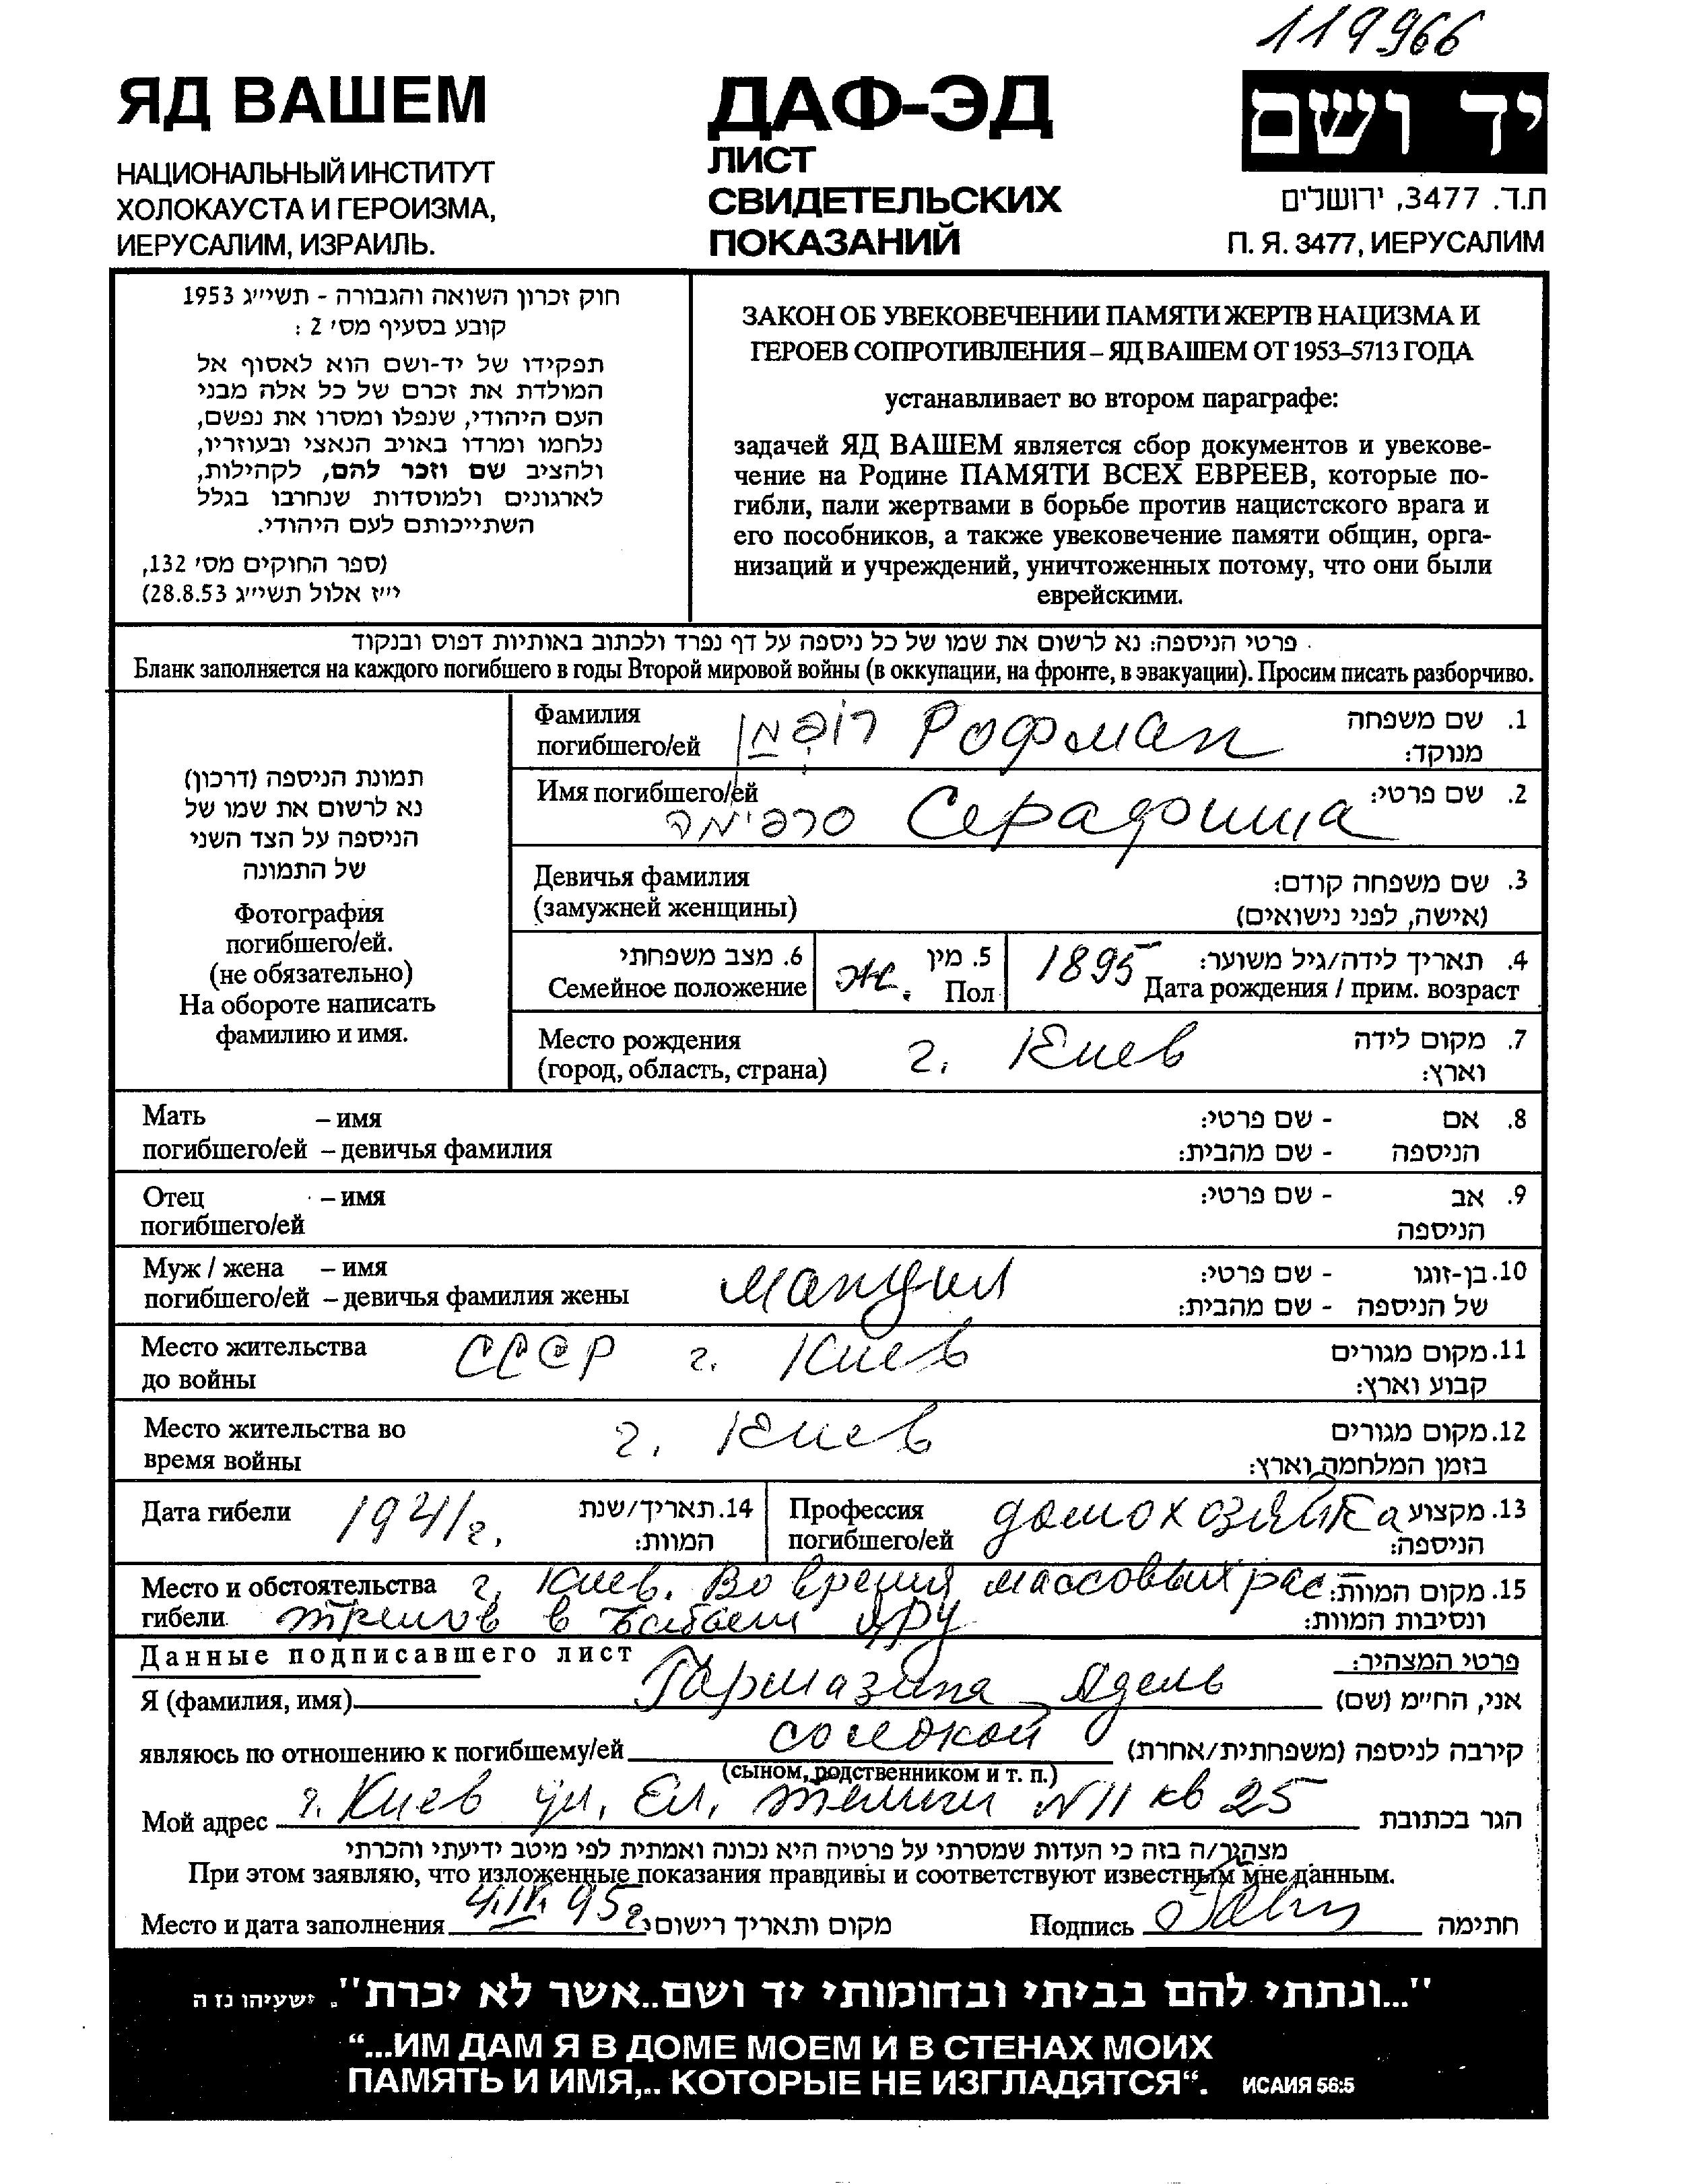 119966
ЯД ВАШЕМ
НАЦИОНАЛЬНЫЙ ИНСТИТУТ
ХОЛОКАУСТА И ГЕРОИЗМА,
ИЕРУСАЛИМ, ИЗРАИЛЬ.
ДАФ-ЭД
ЛИСТ
СВИДЕТЕЛЬСКИХ
ПОКАЗАНИЙ
יד ושם
ת.ד. 3477, ירושלים
П. Я. 3477, ИЕРУСАЛИМ
חוק זכרון השואה והגבורה - תשי״ג 1953
קובע בסעיף מס׳ 2 :
תפקידו של יד-ושם הוא לאסוף אל
המולדת את זכרם של כל אלה מבני
העם היהודי, שנפלו ומסרו את נפשם,
נלחמו ומרדו באויב הנאצי ובעוזריו,
ולהציב שם וזכר להם, לקהילות,
לארגונים ולמוסדות שנחרבו בגלל
השתייכותם לעם היהודי.
(ספר החוקים מס׳ 132,
י״ז אלול תשי״ג 28.8.53)
ЗАКОН ОБ УВЕКОВЕЧЕНИИ ПАМЯТИ ЖЕРТВ НАЦИЗМА И
ГЕРОЕВ СОПРОТИВЛЕНИЯ – ЯД ВАШЕМ ОТ 1953–5713 ГОДА
устанавливает во втором параграфе:
задачей ЯД ВАШЕМ является сбор документов и увекове-
чение на Родине ПАМЯТИ ВСЕХ ЕВРЕЕВ, которые по-
гибли, пали жертвами в борьбе против нацистского врага и
его пособников, а также увековечение памяти общин, орга-
низаций и учреждений, уничтоженных потому, что они были
еврейскими.
פרטי הניספה: נא לרשום את שמו של כל ניספה על דף נפרד ולכתוב באותיות דפוס ובנקוד
Бланк заполняется на каждого погибшего в годы Второй мировой войны (в оккупации, на фронте, в эвакуации). Просим писать разборчиво.
תמונת הניספה (דרכון)
נא לרשום את שמו של
הניספה על הצד השני
של התמונה
Фотография
погибшего/ей.
(не обязательно)
На обороте написать
фамилию и имя.
Фамилия погибшего/ей רופמן Рофман 1. שם משפחה מנוקד:
Имя погибшего/ей סרפימה Серафима 2. שם פרטי:
Девичья фамилия 3. שם משפחה קודם:
(замужней женщины) (אישה, לפני נישואים)
6. מצב משפחתי
Семейное положение
ж. 5. מין
Пол
1895 4. תאריך לידה/גיל משוער:
Дата рождения / прим. возраст
Место рождения 7. מקום לידה
(город, область, страна) г. Киев וארץ:
Мать – имя 8. אם - שם פרטי:
погибшего/ей – девичья фамилия הניספה - שם מהבית:
Отец – имя 9. אב - שם פרטי:
погибшего/ей הניספה
Муж / жена – имя Мандил 10. בן-זוגו - שם פרטי:
погибшего/ей – девичья фамилия жены של הניספה - שם מהבית:
Место жительства СССР г. Киев 11. מקום מגורים
до войны קבוע וארץ:
Место жительства во г. Киев 12. מקום מגורים
время войны בזמן המלחמה וארץ:
Дата гибели 1941 г. 14. תאריך/שנת המוות:
Профессия погибшего/ей домохозяйка 13. מקצוע הניספה:
Место и обстоятельства г. Киев. Во время массовых рас- 15. מקום המוות:
гибели. трелов в Бабьем Яру ונסיבות המוות:
Данные подписавшего лист פרטי המצהיר:
Я (фамилия, имя) Гармазина Адель אני, הח״מ (שם)
являюсь по отношению к погибшему/ей соседкой קירבה לניספה (משפחתית/אחרת)
(сыном, родственником и т. п.)
Мой адрес г. Киев ул. Ел. Телиги N 11 кв 25 הגר בכתובת
מצהיר/ה בזה כי העדות שמסרתי על פרטיה היא נכונה ואמתית לפי מיטב ידיעתי והכרתי
При этом заявляю, что изложенные показания правдивы и соответствуют известным мне данным.
Место и дата заполнения 95г. מקום ותאריך רישום: Подпись חתימה
"...ונתתי להם בביתי ובחומותי יד ושם..אשר לא יכרת". ישעיהו נז ה
“...ИМ ДАМ Я В ДОМЕ МОЕМ И В СТЕНАХ МОИХ
ПАМЯТЬ И ИМЯ,.. КОТОРЫЕ НЕ ИЗГЛАДЯТСЯ“. ИСАИЯ 56:5